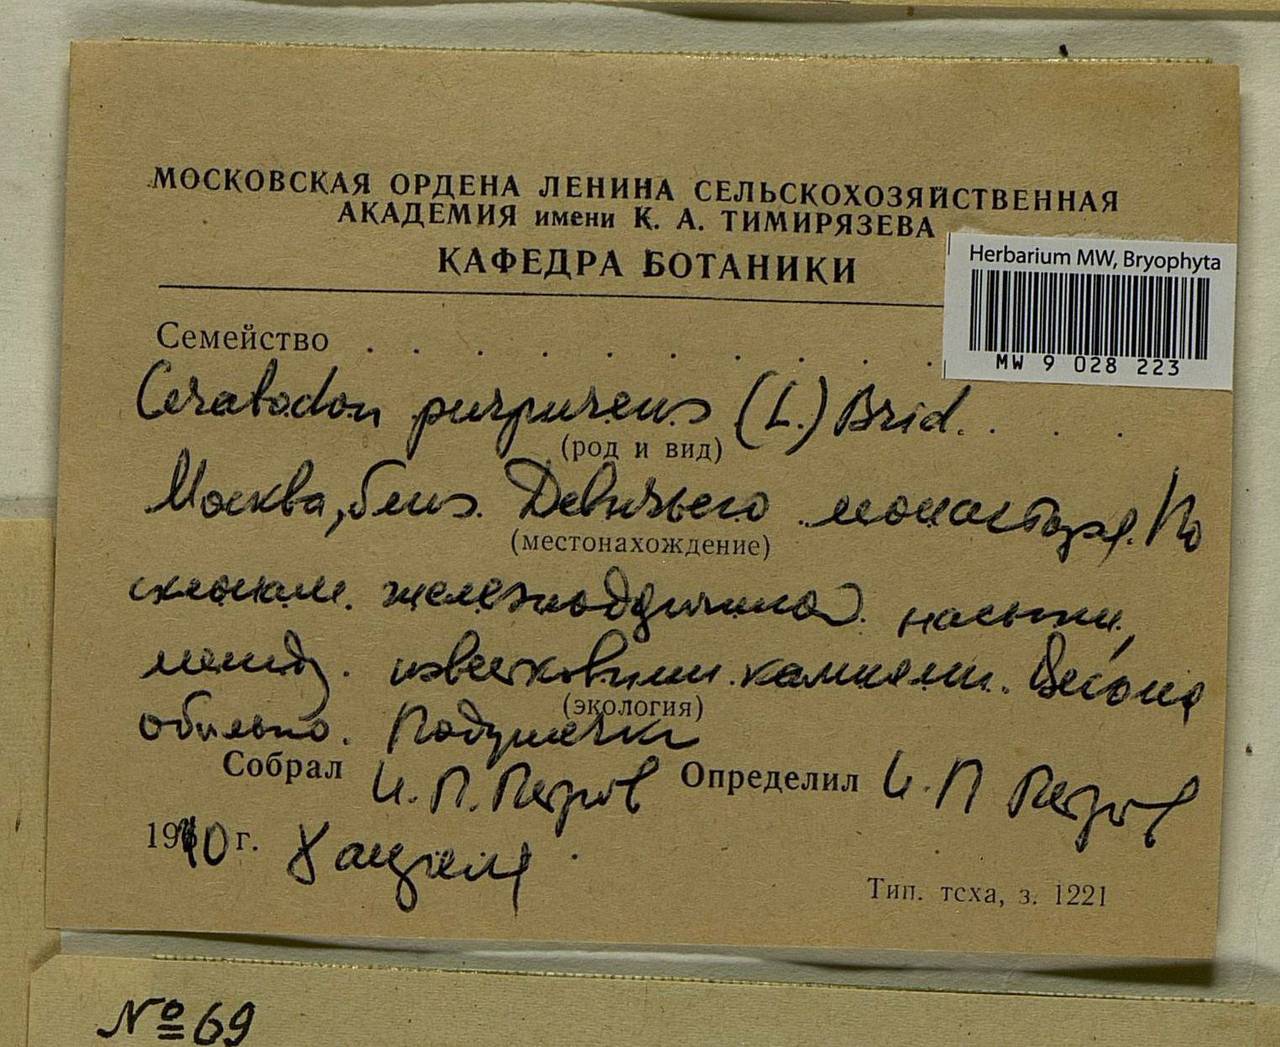 МОСКОВСКАЯ ОРДЕНА ЛЕНИНА СЕЛЬСКОХОЗЯЙСТВЕННАЯ
АКАДЕМИЯ имени К. А. ТИМИРЯЗЕВА
КАФЕДРА БОТАНИКИ
Herbarium MW, Bryophyta
MW 9 028 223
Семейство
Ceratodon purpureus (L.) Brid.
(род и вид)
Москва, близ Девичьего монастыря. По
(местонахождение)
склонам железнодорожной насыпи,
между известковыми камнями. Весьма
(экология)
обильно. Подушечки
Собрал И. П. Петров Определил И. П. Петров
19 0 г. 8 апреля
Тип. тсха, з. 1221
№ 69